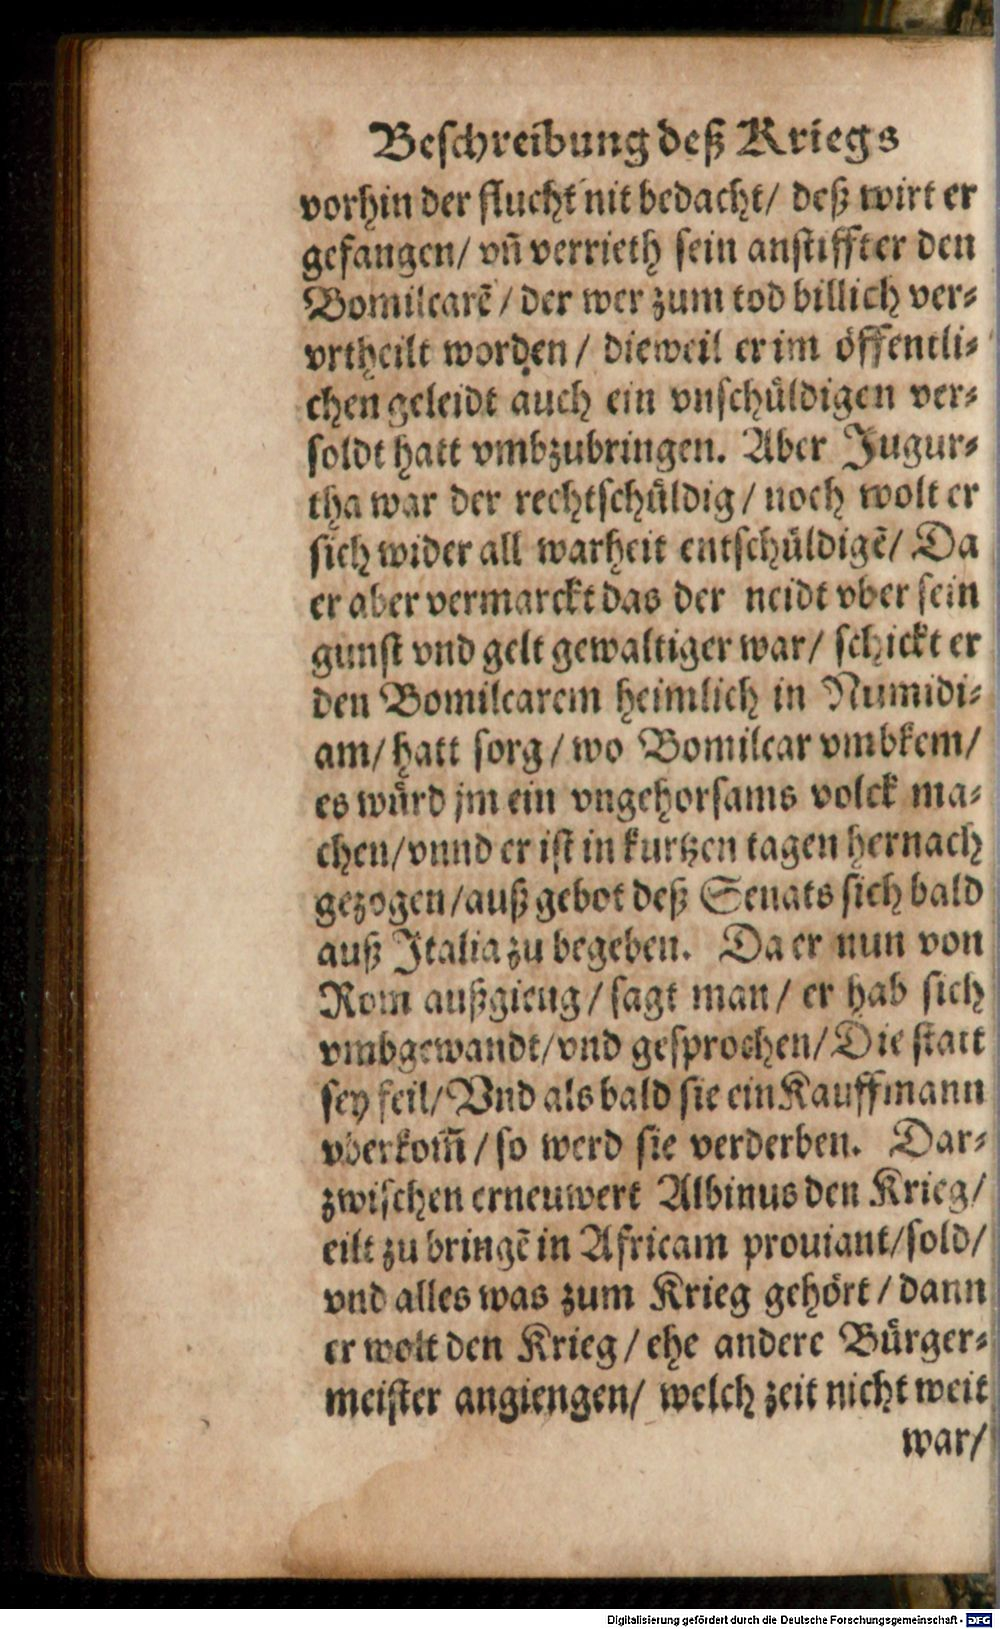 Beschreibung deß Kriegs
vorhin der flucht nit bedacht/ deß wirt er
gefangen/ vñ verrieth sein anstiffter den
Bomilcarẽ/ der wer zum tod billich ver⸗
vrtheilt worden/ dieweil er im öffentli⸗
chen geleidt auch ein vnschüldigen ver⸗
soldt hatt vmbzubringen. Aber Jugur⸗
tha war der rechtschüldig/ noch wolt er
sich wider all warheit entschüldigẽ/ Da
er aber vermarckt das der neidt vber sein
gunst vnd gelt gewaltiger war/ schickt er
den Bomilcarem heimlich in Numidi⸗
am/ hatt sorg/ wo Bomilcar vmbkem/
es würd jm ein vngehorsams volck ma⸗
chen/ vnnd er ist in kurtzen tagen hernach
gezogen/ auß gebot deß Senats sich bald
auß Italia zu begeben. Da er nun von
Rom außgieng/ sagt man/ er hab sich
vmbgewandt/ vnd gesprochen/ Die statt
sey feil/ Vnd als bald sie ein Kauffmann
vberkom̃/ so werd sie verderben. Dar⸗
zwischen erneuwert Albinus den Krieg/
eilt zu bringẽ in Africam prouiant/ sold/
vnd alles was zum Krieg gehört/ dann
er wolt den Krieg/ ehe andere Bürger⸗
meister angiengen/ welch zeit nicht weit
war/
Digitalisierung gefördert durch die Deutsche Forschungsgemeinschaft - DFG